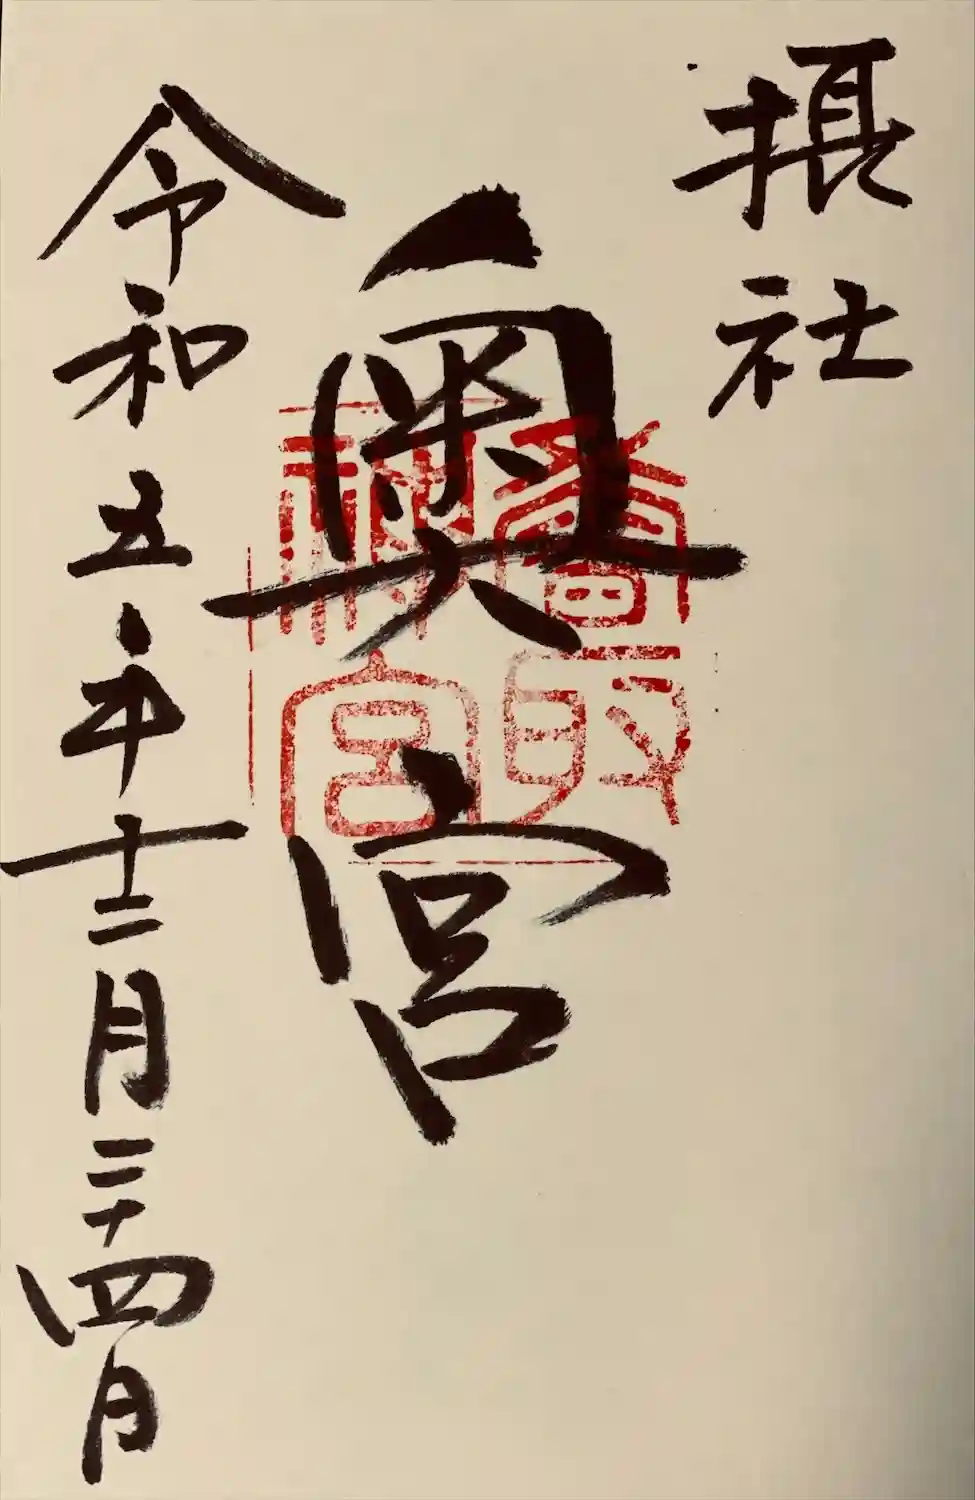 摂社
奥宮
香取
神宮
令和五年十二月二十四日